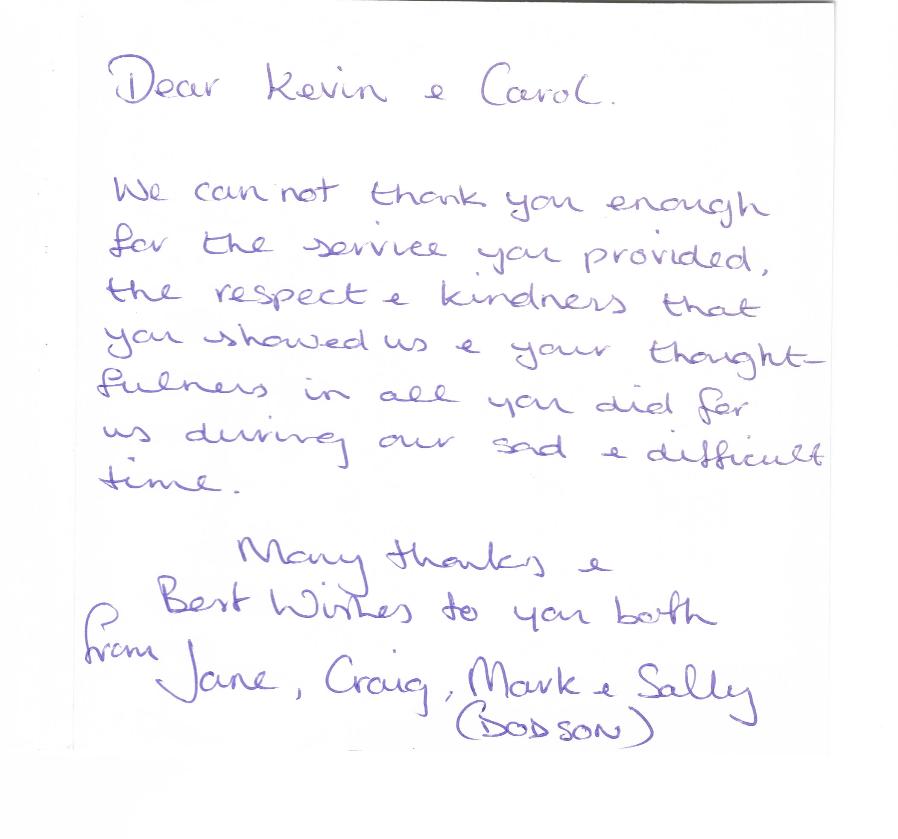 Dear Kevin & Carol.
We can not thank you enough
for the service you provided,
the respect & kindness that
you showed us & your thought-
fulness in all you did for
us during our sad & difficult
time.
Many thanks &
Best Wishes to you both
from
Jane, Craig, Mark & Sally
(DODSON)